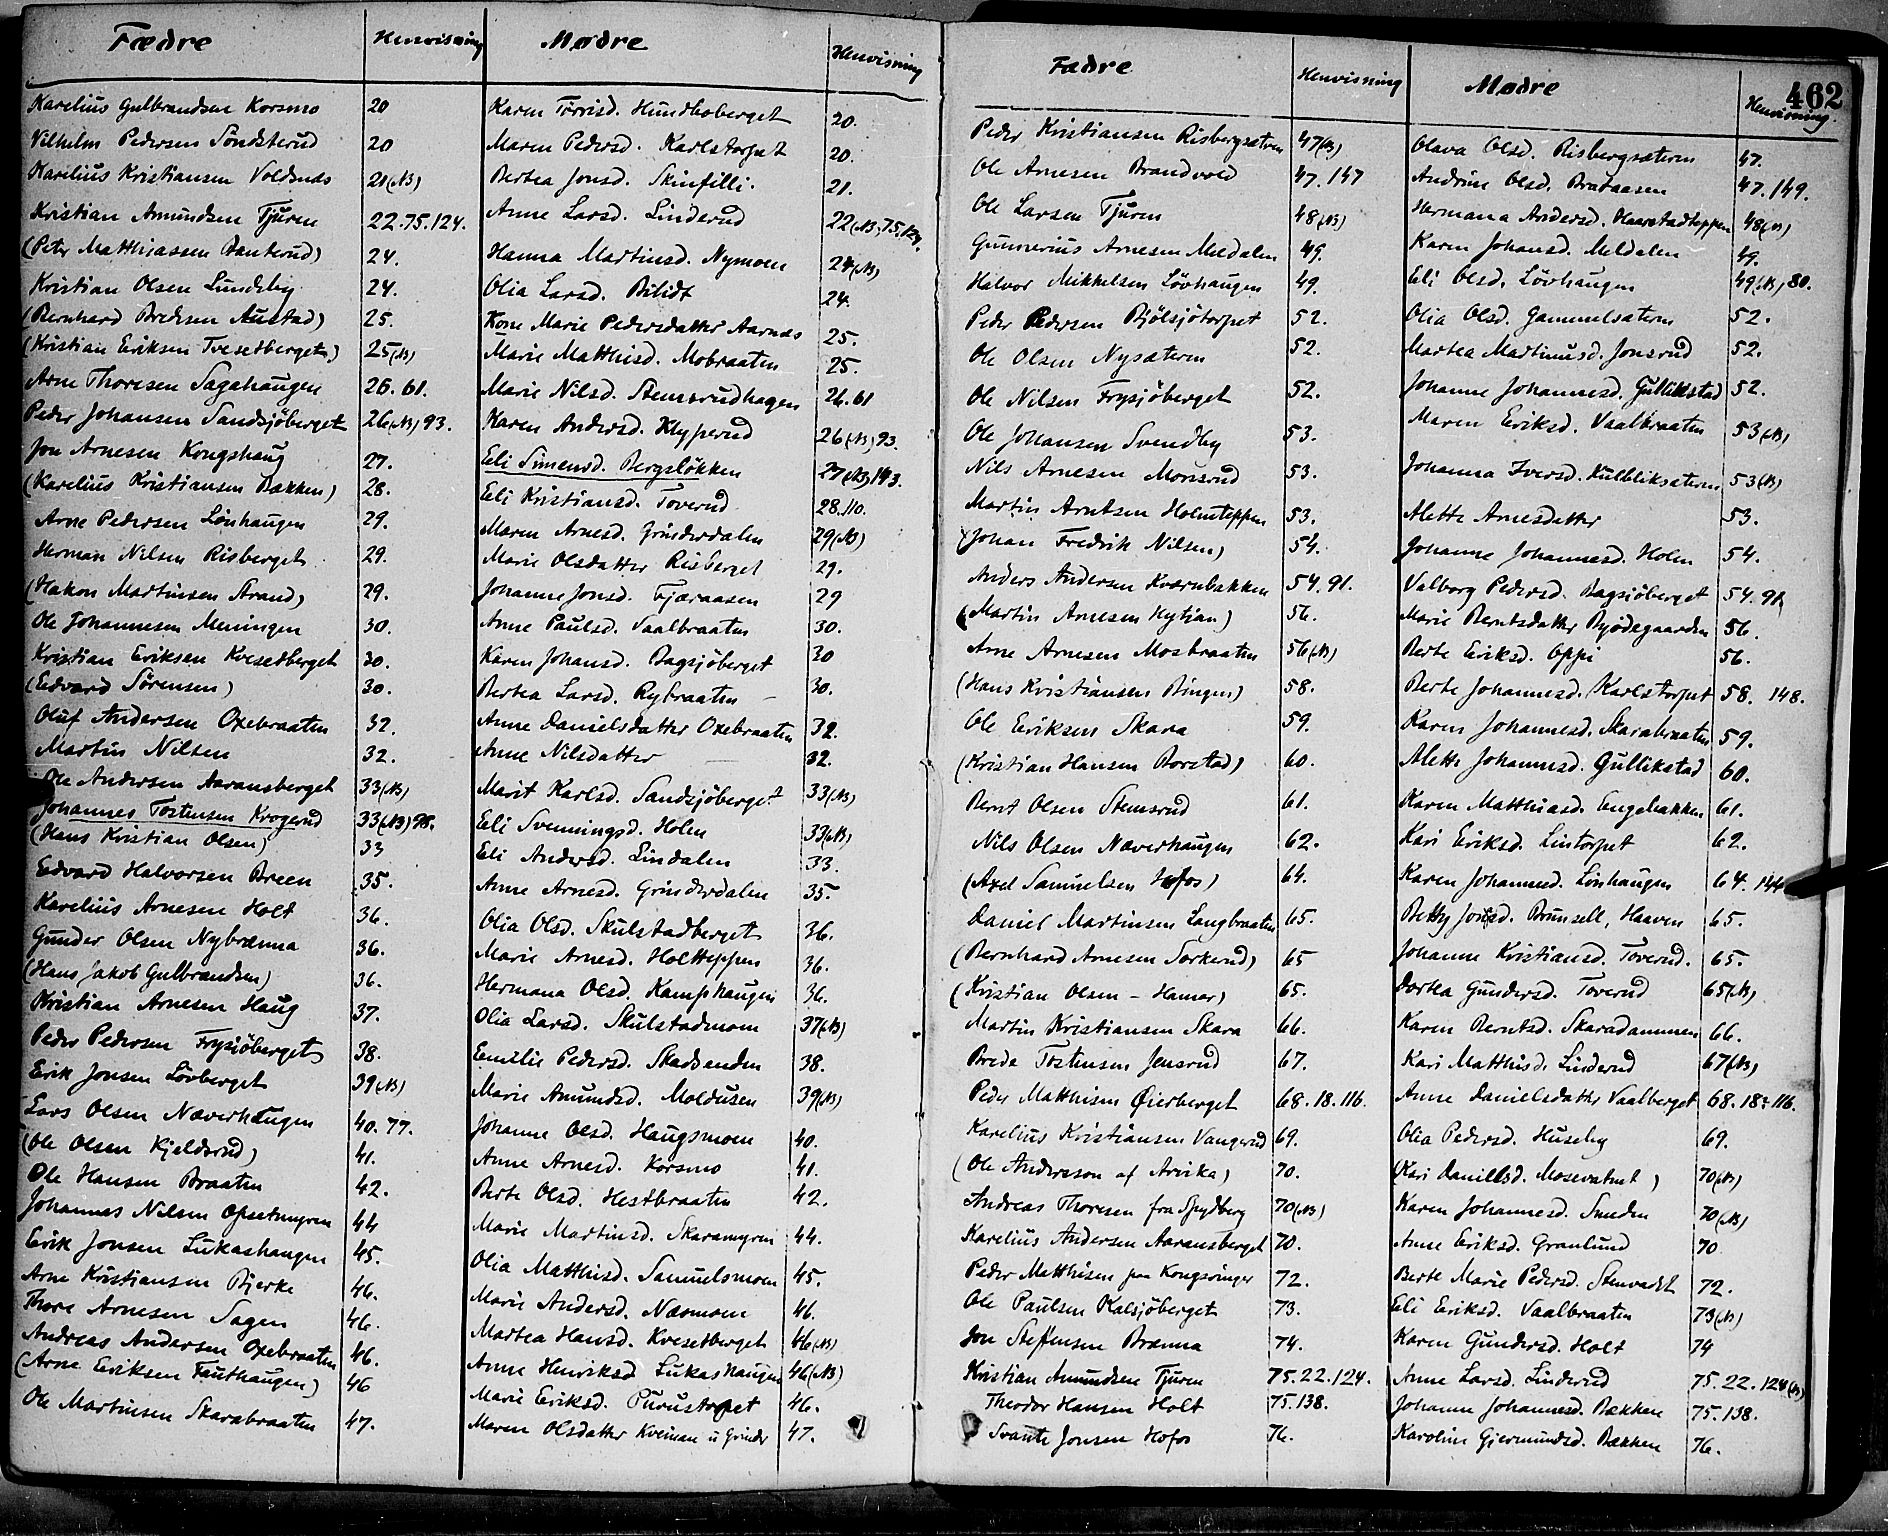 Fædre Henvisning Mødre Henvisning
Karelius Gulbrandsen Korsmo 20 Karen Torrisd. Hundboberget 20.
Vilhelm Pedersen Sondsterud 20 Maren Pedersd. Karlstorpet 20.
Karelius Kristiansen Voldsnæs 21(NB) Bertea Jonsd. Skinfilli. 21.
Kristian Amundsen Tjuren 22.75.124. Anne Larsd. Linderud 22(NB),75.124.
(Peter Matthiassen Banterud) 24. Hanna Martinsd. Nymoen 24(NB)
Kristian Olsen Lundsby 24. Olia Larsd. Bilidt 24.
(Bernhard Bredesen Austad) 25. Kone Marie Pedersdatter Aarnæs 25.
(Kristian Eriksen Tvesetberget) 25(NB) Marie Matthisd. Mobraaten 25.
Arne Thoresen Sagahaugen 26.61. Marie Nilsd. Stensrudhagen 26.61
Peder Johansen Sandsjöberget 26(NB)93. Karen Andersd. Klyperud 26(NB)93.
Jon Arnesen Kongshaug 27. Eli Simensd. Bergslökken 27(NB)143.
(Karelius Kristiansen Bækken) 28. Eli Kristiansd. Toverud 28.110.
Arne Pedersen Lönhaugen 29. Maren Arnesd. Grinderdalen 29(NB)
Herman Nilsen Risberget 29. Marie Olsdatter Risberget 29.
(Hakon Martinsen Strand) 29. Johanne Jonsd. Fjæraasen 29
Ole Johannesen Meningen 30. Anne Paulsd. Vaalbraaten 30.
Kristian Eriksen Kvesetberget 30. Karen Johansd. Bagsjöberget 30
(Edvard Sörensen) 30. Bertea Larsd. Rybraaten 30.
Oluf Andersen Oxebraaten 32. Anne Danielsdatter Oxebraaten 32.
Martin Nilsen 32. Anne Nilsdatter 32.
Ole Andersen Aaransberget 33(NB) Marit Karlsd. Sandsjöberget 33(NB)
Johannes Tostensen Krogerud 33(NB)98. Eli Svenningsd. Holen 33(NB)
(Hans Kristian Olsen) 33 Eli Andersd. Lindalen 33.
Edvard Halvorsen Breen 35. Anne Arnesd. Grinderdalen 35.
Karelius Arnesen Holt 36. Olia Olsd. Skulstadberget 36.
Gunder Olsen Nybrænna 36. Marie Arnesd. Holtteppen 36.
(Hans Jakob Gulbrandsen) 36. Hermana Olsd. Kamphaugen 36.
Kristian Arnesen Haug 37. Olia Larsd. Skulstadmoen 37(NB)
Peder Pedersen Frysjöberget 38. Emilie Pedersd. Skadsenden 38.
Erik Jonsen Lövberget 39(NB) Marie Amundsd. Moldusen 39(NB)
Lars Olsen Næverhaugen 40.77. Johanne Olsd. Haugsmoen 40.
(Ole Olsen Kjeldsrud) 41. Anne Arnesd. Korsmo 41.
Ole Hansen Braaten 42. Berte Olsd. Hestbraaten 42.
Johannes Nilsen Opsetmyren 44 Marie Martinsd. Skaramyren 44.
Erik Jonsen Lukashaugen 45. Olia Matthisd. Samuelsmoen 45.
Arne Kristiansen Bjerke 46. Marie Andersd. Næsmoen 46.
Thore Arnesen Sagen 46. Martea Hansd. Kvesetberget 46(NB)
Andreas Andersen Oxebraaten 46. Anne Henriksd Lukashaugen 46(NB)
(Arne Eriksen Fauthaugen) 46 Marie Eriksd. Purustorpet 46.
Ole Martinsen Skarabraaten 47. Maren Olsdatter Kveinan u Grinder 47.
462
Fædre Henvisning Mødre Henvisning
Peder Kristiansen Risbergsæteren 47(NB) Olava Olsd. Risbergsæteren 47.
Ole Arnesen Brandvold 47.147 Andrine Olsd. Brataasen 47.149.
Ole Larsen Tjuren 48(NB) Hermana Andersd. Haarstadteppen 48(NB)
Gunnerius Arnesen Meldalen 49. Karen Johansd. Meldalen 49.
Halvor Mikkelsen Lövhaugen 49. Eli Olsd. Lövhaugen 49(NB)80.
Peder Pedersen Bjölsjötorpet 52. Olia Olsd. Gammelsæteren 52.
Ole Olsen Nysæteren 52. Martea Martinusd. Jonsrud 52.
Ole Nilsen Frysjöberget 52. Johanne Johannesd. Gullikstad 52.
Ole Johansen Svendby 53. Maren Eriksd. Vaalbraaten 53(NB)
Nils Arnesen Monsrud 53. Johanna Iversd. Kulbliksæteren 53(NB)
Martin Arntsen Holmteppen 53. Alette Arnesdatter 53.
(Johan Fredrik Nilsen) 54. Johanne Johannesd. Holen 54.
Anders Andersen Kværnbækken 54.91. Valborg Pedersd. Bagsjöberget 54.91.
(Martin Arnesen Nytjan) 56. Marie Berntsdatter Byödegaarden 56.
Arne Arnesen Mosbraaten 56(NB) Berte Eriksd. Oppi 56.
(Hans Kristiansen Bingen) 58. Berte Johannesd. Karlstorpet 58. 148.
Ole Eriksen Skara 59. Karen Johannesd. Skarabraaten 59.
(Kristian Hansen Borstad) 60. Alette Johannesd. Gullikstad 60.
Bernt Olsen Stemsrud 61. Karen Matthiasd. Engebakken 61.
Nils Olsen Næverhaugen 62. Kari Eriksd. Lintorpet 62.
(Axel Samuelsen Hofos) 64. Karen Johannesd. Lönhaugen 64. 144
Daniel Martinsen Langbraaten 65. Betty Jonsd. Brunsell, Haaven 65.
(Bernhard Arnesen Sorkerud) 65 Johanne Kristiansd. Toverud. 65.
(Kristian Olsen – Hamar) 65. Dortea Gundersd. Toverud 65(NB)
Martin Kristiansen Skara 66. Karen Berntsd. Skaradammen 66.
Brede Tostensen Jensrud 67. Kari Matthisd. Linderud 67(NB)
Peder Matthisen Øierberget 68.18.116. Anne Danielsdatter Vaalberget 68.18.116.
Karelius Kristiansen Vangerud 69. Olia Pedersd. Huseby 69.
(Ole Andersson af Arvika) 70. (Kari Danielsd. Mosevatnet) 70(NB)
Andreas Thoresen fra Spydberg 70(NB) Karen Johannesd. Sneden 70(NB)
Karelius Andersen Aaransberget 70. Anne Eriksd. Granlund 70
Peder Matthisen fra Kongsvinger 72. Berte Marie Pedersd. Stenvadet 72.
Ole Paulsen Kalsjöberget 73. Eli Eriksd. Vaalbraaten 73(NB)
Jon Steffensen Brænna 74. Karen Gundersd. Holt 74
Kristian Amundsen Tjuren 75.22.124. Anne Larsd. Linderud 75.22.124(NB)
Theodor Hansen Holt 75.138. Johanne Johannesd. Bækken 75.138.
Svante Jonsen Hofos 76. Karoline Gjermundsd. Bækken 76.